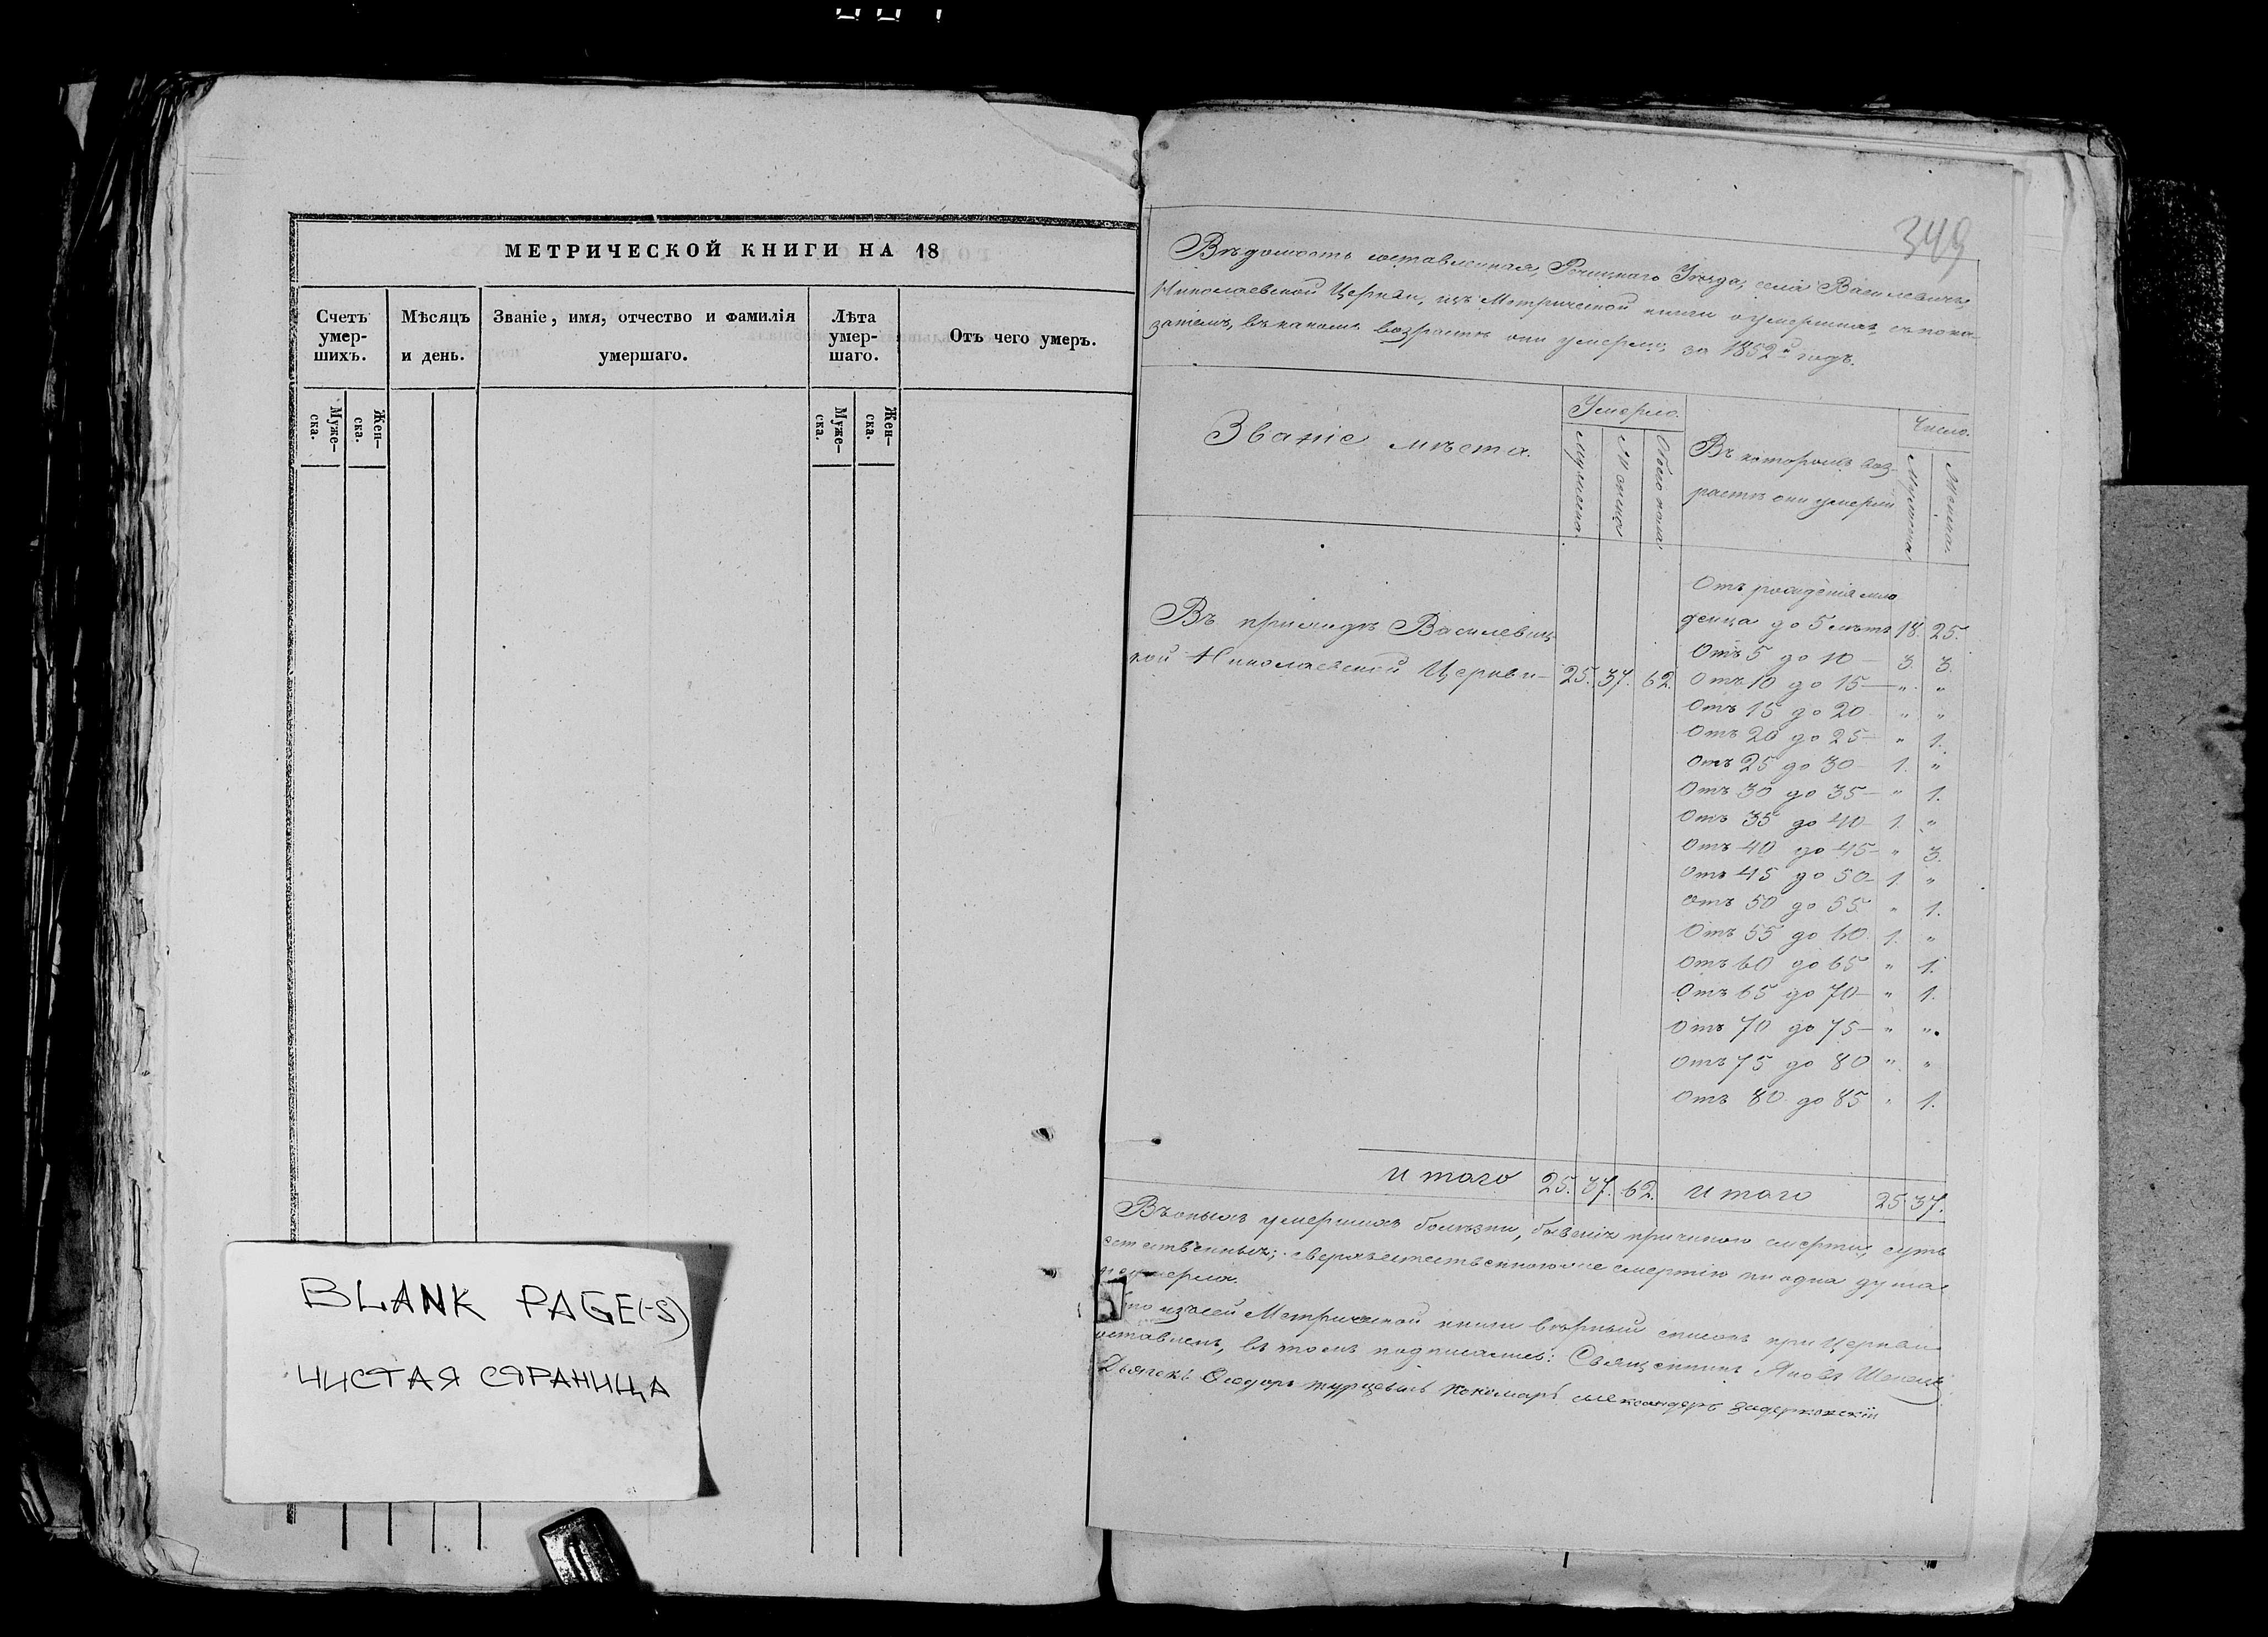 МЕТРИЧЕСКОЙ КНИГИ НА 18
Счетъ умер-шихъ.
Мѣсяцъ и день.
Званіе, имя, отчество и фамилія умершаго.
Лѣта умер-шаго.
Отъ чего умеръ.
Муже-ска.
Жен-ска.
Муже-ска.
Жен-ска.
BLANK PAGE(-S)
ЧИСТАЯ СТРАНИЦА
349
Вѣдомость составленная, Рѣчицкаго Уѣзда, села Василевичъ,
Николаевской Церкви, изъ Метрической книги о умершихъ, съ пока-
заніемъ, въ какомъ возрастѣ они умерли, за 1852й годъ.
Званіе мѣста.
Умерло.
Мужеска.
Женска
Обоего пола
Въ которомъ воз-
растѣ они умерли
Число.
Мужеска
Женска.
Въ приходѣ Василевиц-
кой Николаевской Церкви- 25. 37. 62.
Отъ рожденія мла
денца до 5 лѣтъ 18. 25.
Отъ 5 до 10 — 3. 3.
Отъ 10 до 15 — " "
Отъ 15 до 20 " "
Отъ 20 до 25 — " 1.
Отъ 25 до 30 — 1. "
Отъ 30 до 35 — " 1.
Отъ 35 до 40 — 1. "
Отъ 40 до 45 — " 3.
Отъ 45 до 50 — 1. "
Отъ 50 до 55 " 1.
Отъ 55 до 60 1. "
Отъ 60 до 65 " 1.
Отъ 65 до 70 — " 1.
Отъ 70 до 75 — " "
Отъ 75 до 80 " "
Отъ 80 до 85 " 1.
Итого 25. 37. 62. Итого 25 37.
Въ оныхъ умершихъ болѣзни, бывшія причиною смерти, суть
естественныя; сверхъестественною же смертію ни одна душа
не умерла.
Что изъ сей Метрической книги вѣрный списокъ при Церкви
оставленъ, въ томъ подписались: Священникъ Яковъ
Дьячекъ Ѳеодоръ Пономарь Александръ